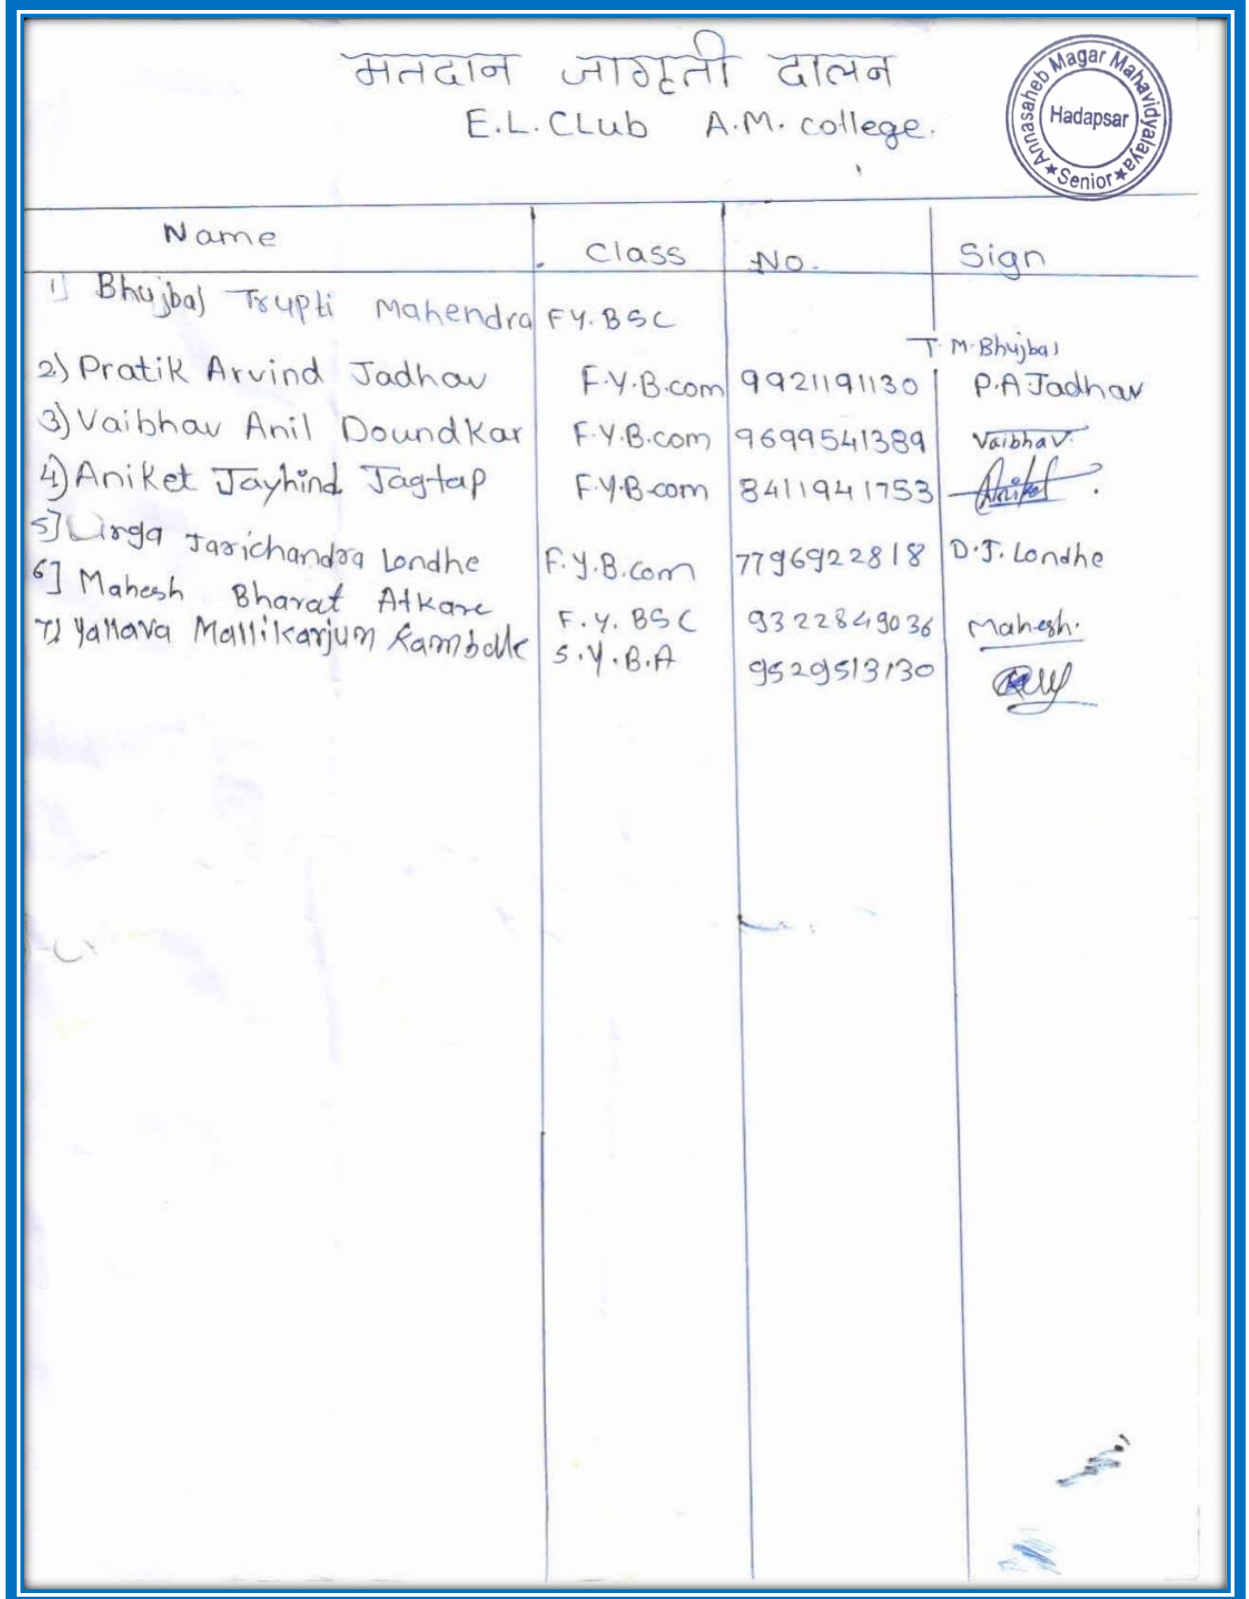 मतदान जागृती दालन
E.L.Club A.M. college.
Annasaheb Magar Mahavidyalaya
Hadapsar
★ Senior ★
Name Class No. Sign
1] Bhujbal Trupti Mahendra FY.BSC T.M.Bhujbal
2) Pratik Arvind Jadhav F.Y.B.com 9921191130 P.A Jadhav
3) Vaibhav Anil Doundkar F.Y.B.com 9699541389 Vaibhav.
4) Aniket Jayhind Jagtap F.Y.B.com 8411941753 Aniket
5] Jarichandra Londhe F.Y.B.com 7796922818 D.J. Londhe
6] Mahesh Bharat Atkare F.Y. BSC 9322849036 Mahesh.
7] Yallava Mallikarjun Kamble S.Y.B.A 9529513130